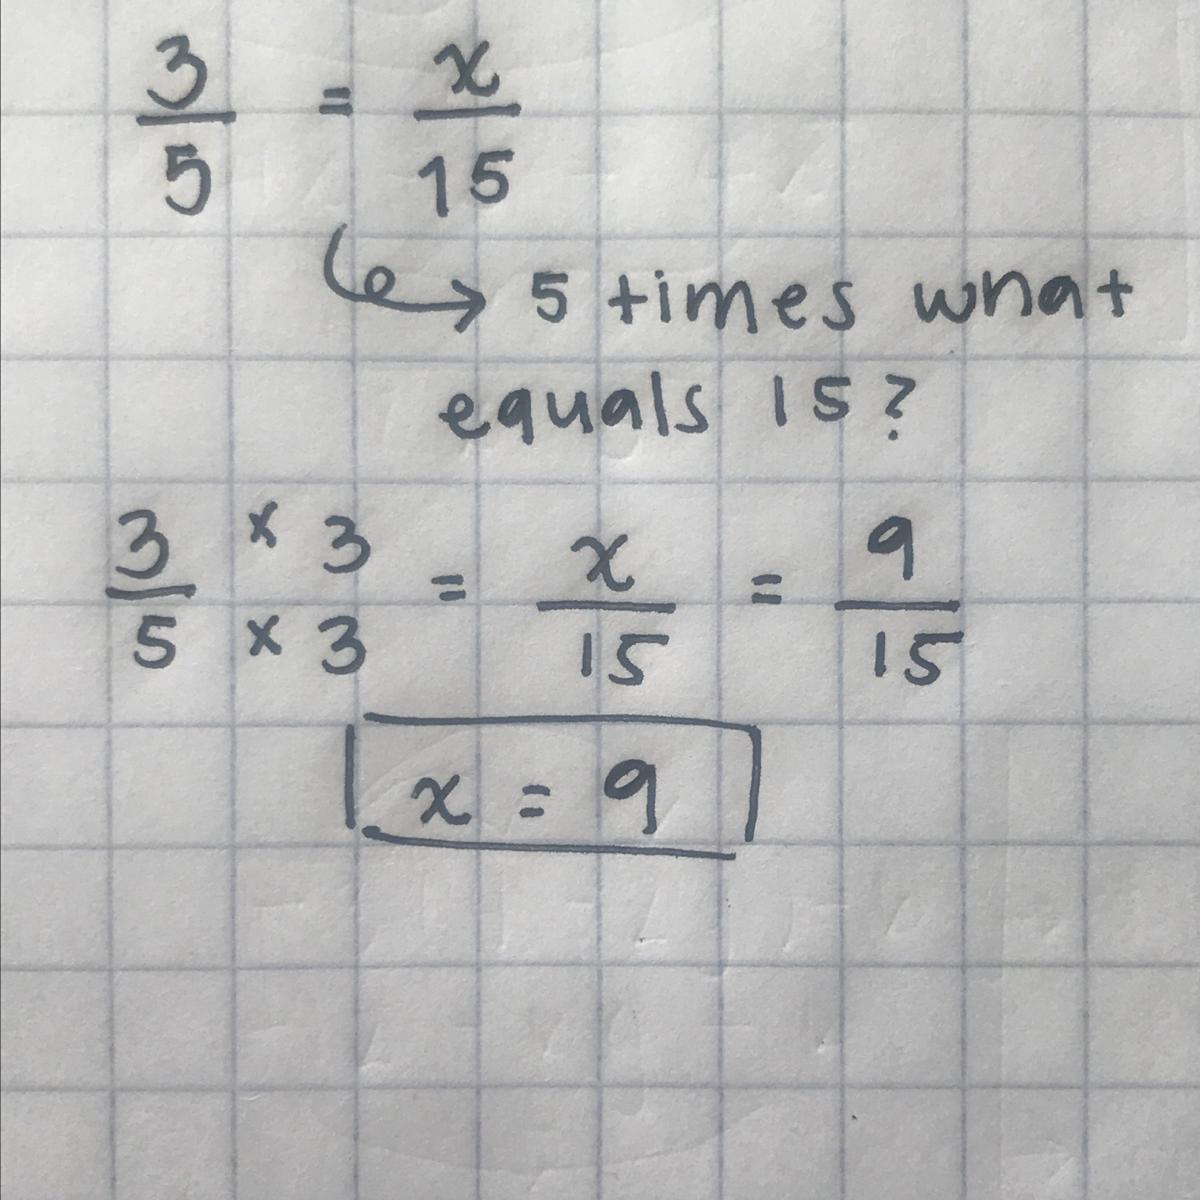 3/5 = x/15
↪ 5 times what
equals 15?
3 × 3 / 5 × 3 = x/15 = 9/15
x = 9